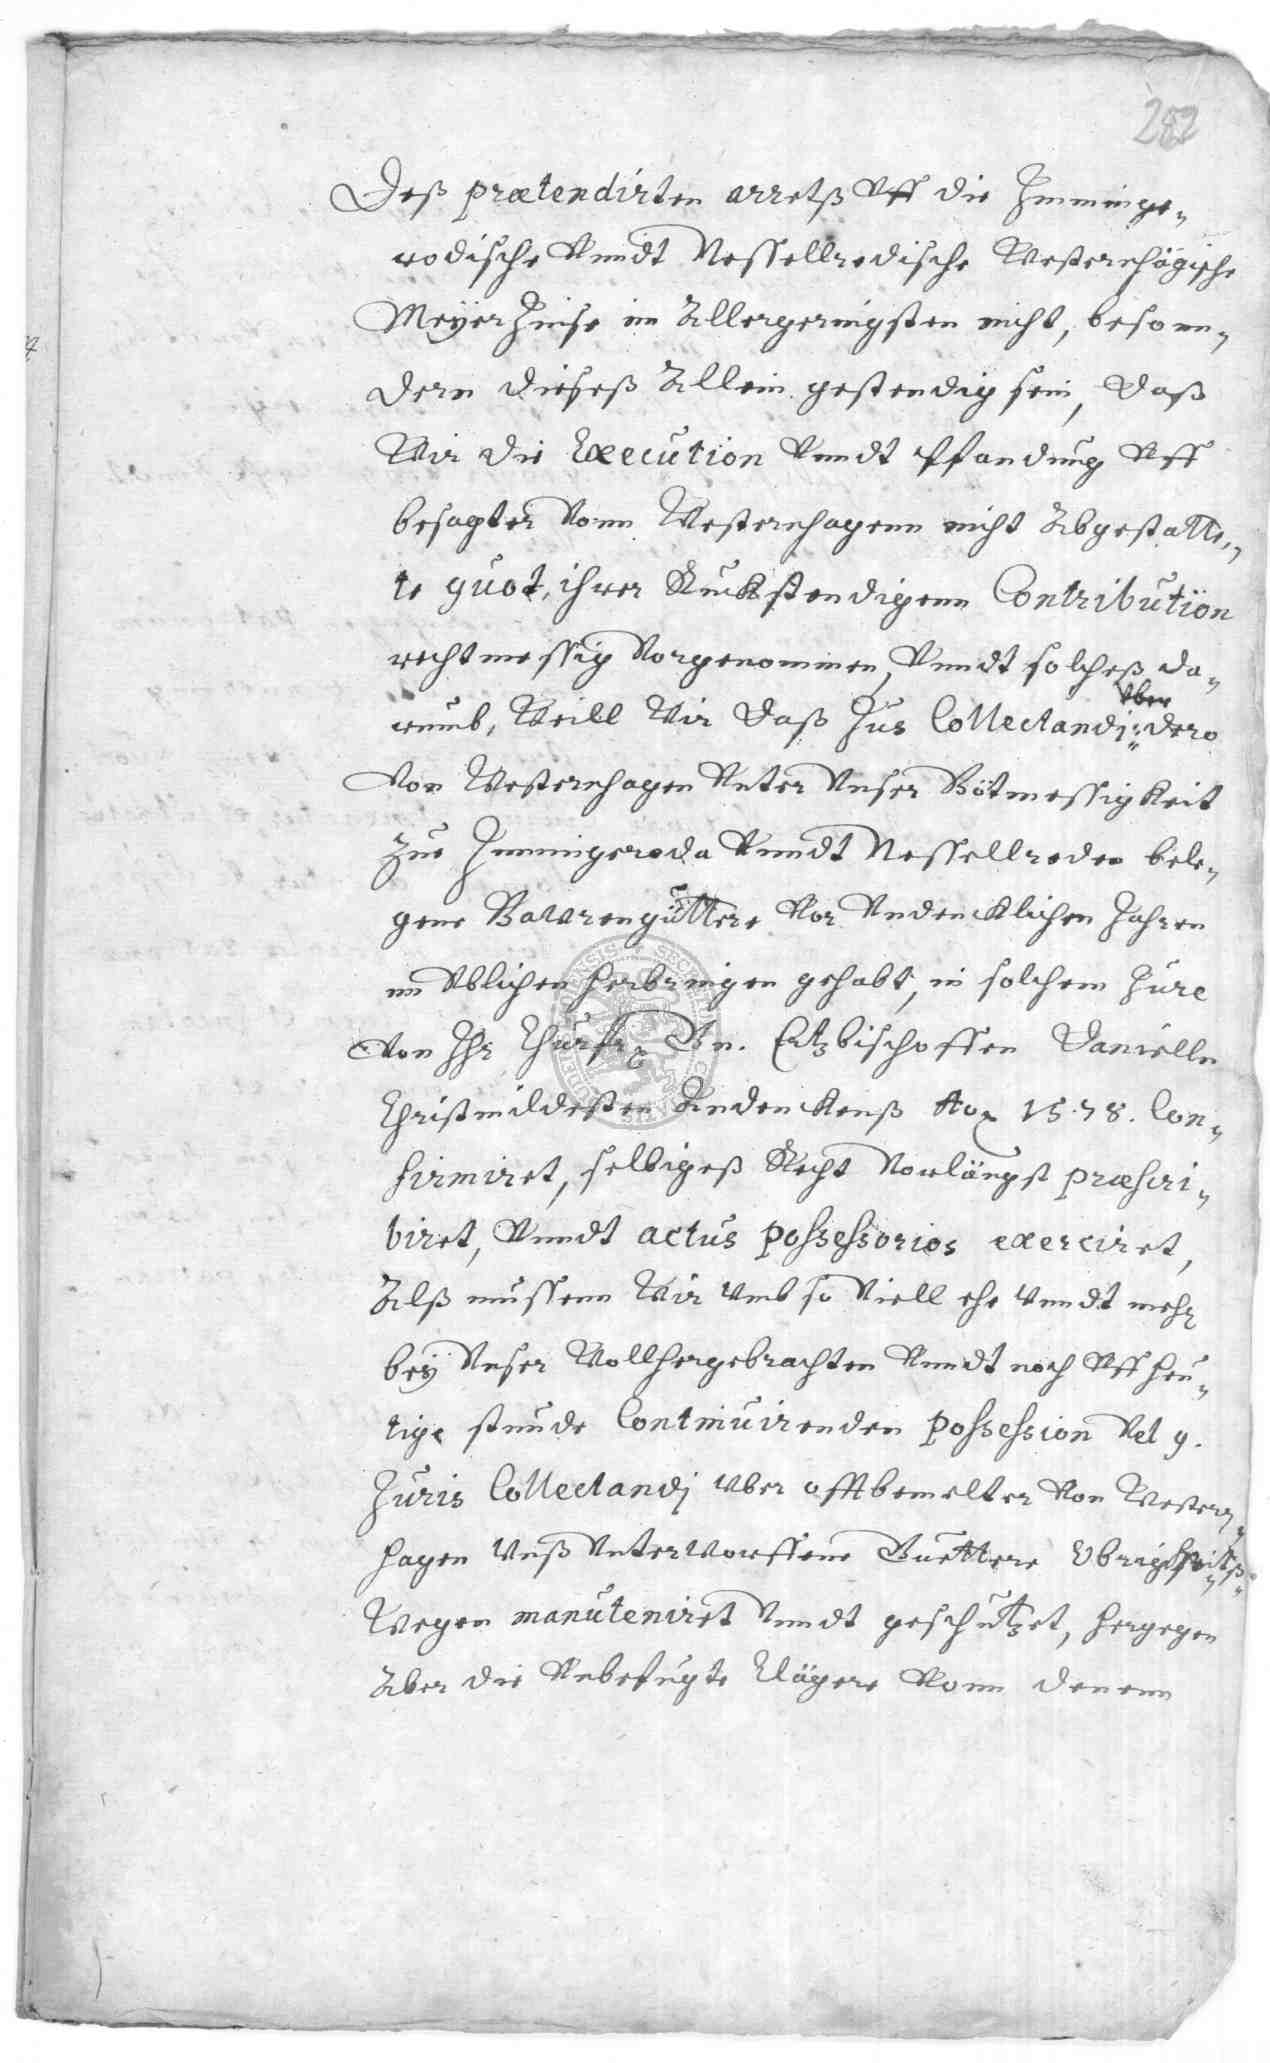 282
Deß prætendirten arretß Vff die Imminge„
rodische Vnndt Nessellredische Westernhägische
Meyer Zinse im Allergeringsten nicht, besonn„
dern dieseß Allein gestendig sein, daß
Wir die Execution Vnndt Pfandung Vff
besagter Vonn Westernhagenn nicht Abgestatte„
te quot, ihrer Ruckstendigenn Contribution
rechtmessig Vorgenommen, Vnndt solcheß da„
rumb, Weill Wir daß Jus Collectandj Vber dero
Von Westernhagen Vnter Vnser Bötmessigkeit
zue Immingeroda Vnndt Nessellreden bele„
gene Bawrengüttere Vor Vndencklichen Jahren
im Vblichen herbringen gehabt, in solchem Jure
Von Ihr Churfr. Gn. Ertzbischoffen Daniëlln
Christmildesten Andenckenß Ao 1578. Con„
firmiret, selbigeß Recht Vorlängst præscri„
biret, Vnndt actus possessorios exerciret,
Alß mussenn Wir Vmb so Viell ehe Vnndt mehr
bey Vnser Wollhergebrachten Vnndt noch Vff heu„
tige stunde Continuirenden possession Vel q.
Juris Collectandj Vber offtbemelter Von Western„
hagen Vnß Vnterworffene Guettere Obrigkeitß„
Wegen manuteniret Vnndt geschützet, hergegen
Aber die Vnbefugte Klägere Vonn denenn